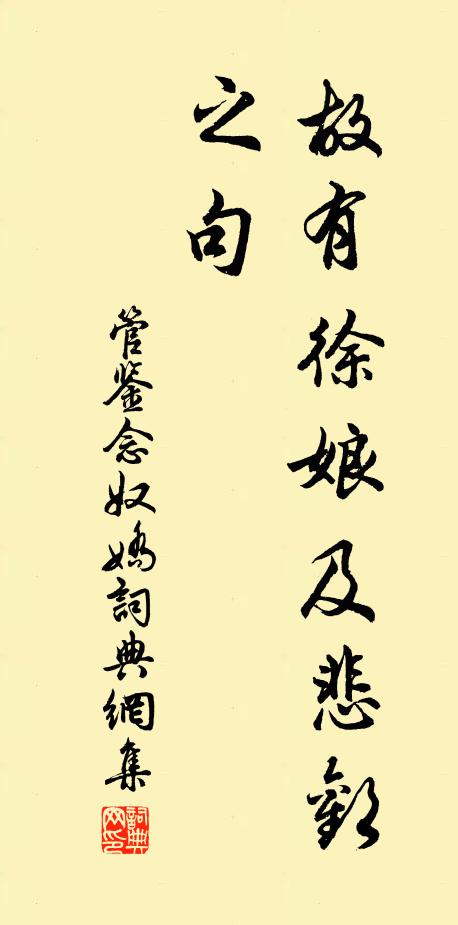 故有徐娘及悲歡
之句
管鉴念奴嬌詞典網集
詞典
网印